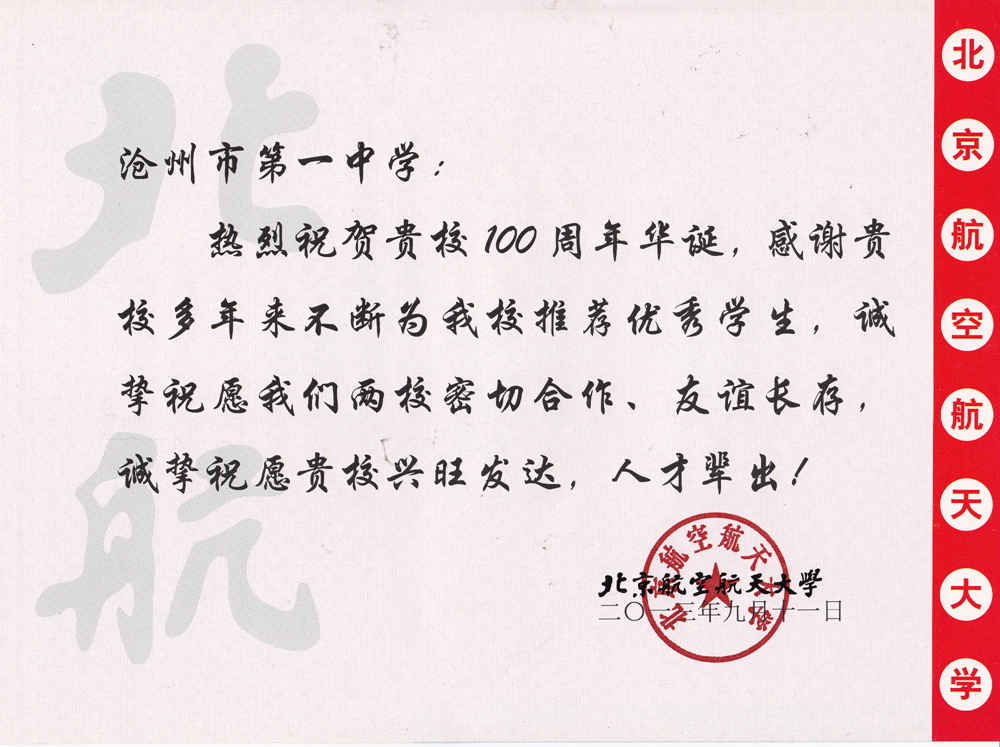 北航
沧州市第一中学：
热烈祝贺贵校100周年华诞，感谢贵
校多年来不断为我校推荐优秀学生，诚
挚祝愿我们两校密切合作、友谊长存，
诚挚祝愿贵校兴旺发达，人才辈出！
北京航空航天大學
二〇一三年九月十一日
北京航空航天大学
北京航空航天大学